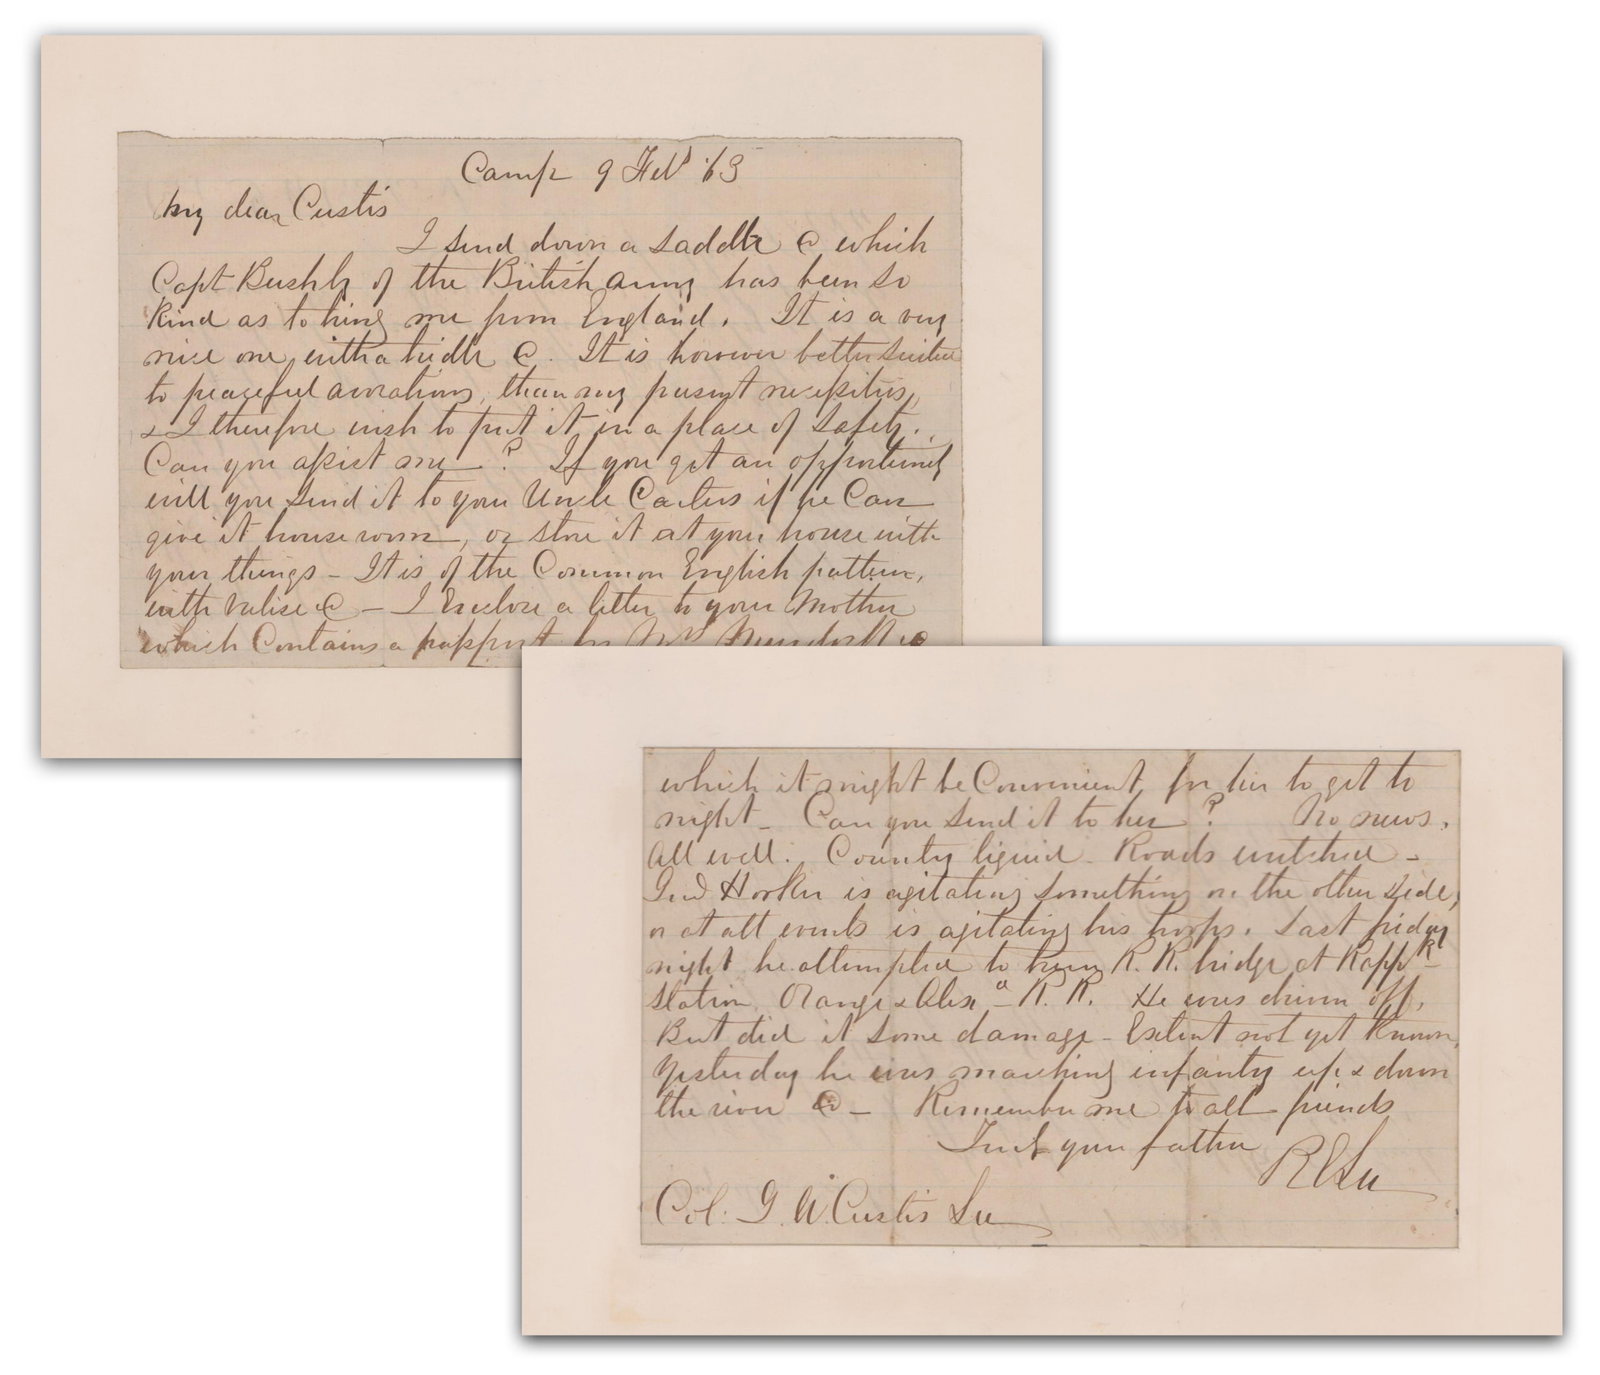 Camp 9 Feb '63
My dear Custis
I send down a saddle &c which
Capt Bushby of the British Army has been so
kind as to bring me from England. It is a very
nice one, with a bridle &c. It is however better suited
to peaceful avocations, than my present necessities,
& I therefore wish to put it in a place of safety.
Can you assist me? If you get an opportunity
will you send it to your Uncle Carters if he can
give it house room, or store it at your house with
your things - It is of the Common English pattern,
with valise &c - I Enclose a letter to your Mother
which Contains a passport for Mrs &c
which it might be Convenient for her to get to
night - Can you send it to her? No news.
All well. Country liquid - Roads wretched -
Genl Hooker is agitating something on the other side,
or at all events is agitating his troops. Last friday
night he attempted to burn R. R. bridge at Rappk
Station Orange & Alexa R. R. He was driven off,
But did it some damage - Extent not yet Known,
Yesterday he was marching infantry up & down
the river &c - Remember me to all friends
Truly your father
R E Lee
Col. G. W. Custis Lee